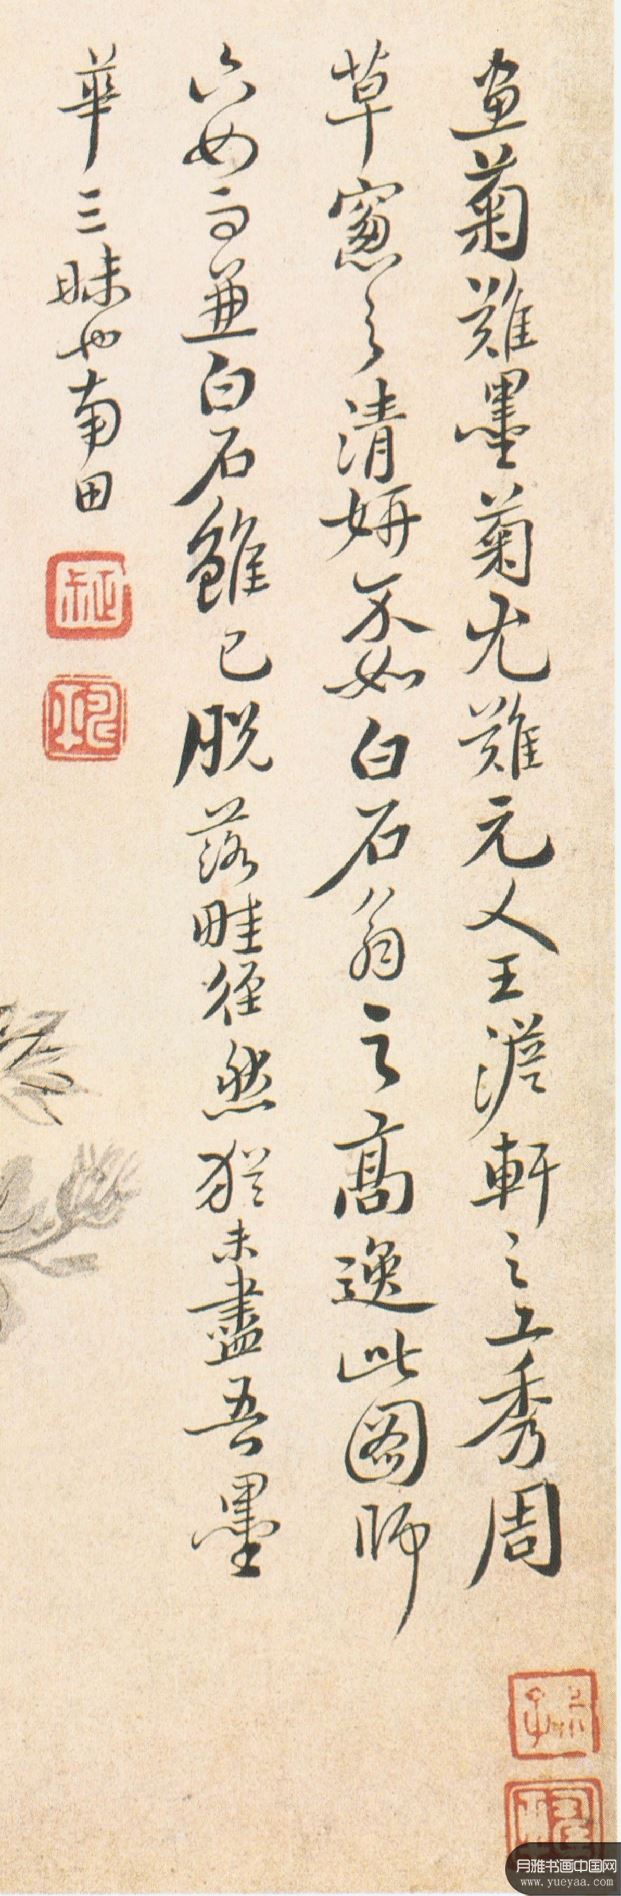 畫菊難墨菊尤難元人王澹軒之工秀周
草窻之清妍不如白石翁之高逸此圖師
六如而兼白石雖已脫落畦徑然猶未盡吾墨
華三昧也南田
月雅书画中国网
www.yueyaa.com